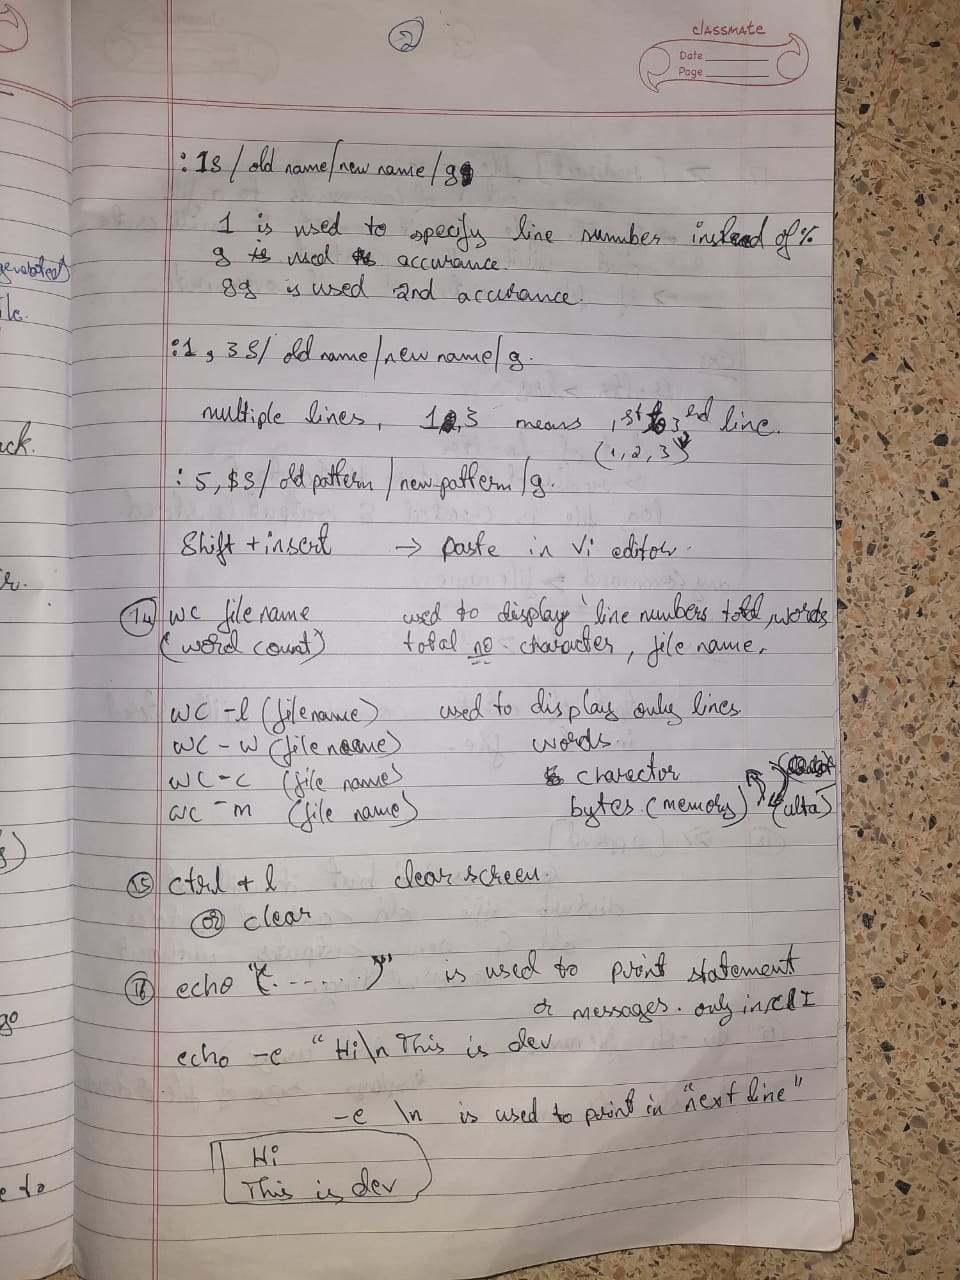 2
classmate
Date
Page
:1s/old name/new name/g
1 is used to specify line number instead of %
g is used accurance.
gg is used 2nd accurance.
:1,3s/old name/new name/g.
multiple lines, 1,3 means 1st to 3rd line.
(1,2,3)
:5,$s/old pattern/new pattern/g.
Shift + insert → paste in vi editor.
14 wc file name used to display line numbers total, words
(word count) total no. character, file name.
wc -l (filename) used to display only lines
wc -w (file name) words.
wc -c (file name) charector
wc -m (file name) bytes (memory) (ulta)
15 ctrl + l clear screen.
or clear
16 echo "(......)" is used to print statement
or messages. only in CLI
echo -e "Hi\n This is dev
-e \n is used to print in "next line"
Hi
This is dev
generated
ile.
ack.
ir.
go
e to